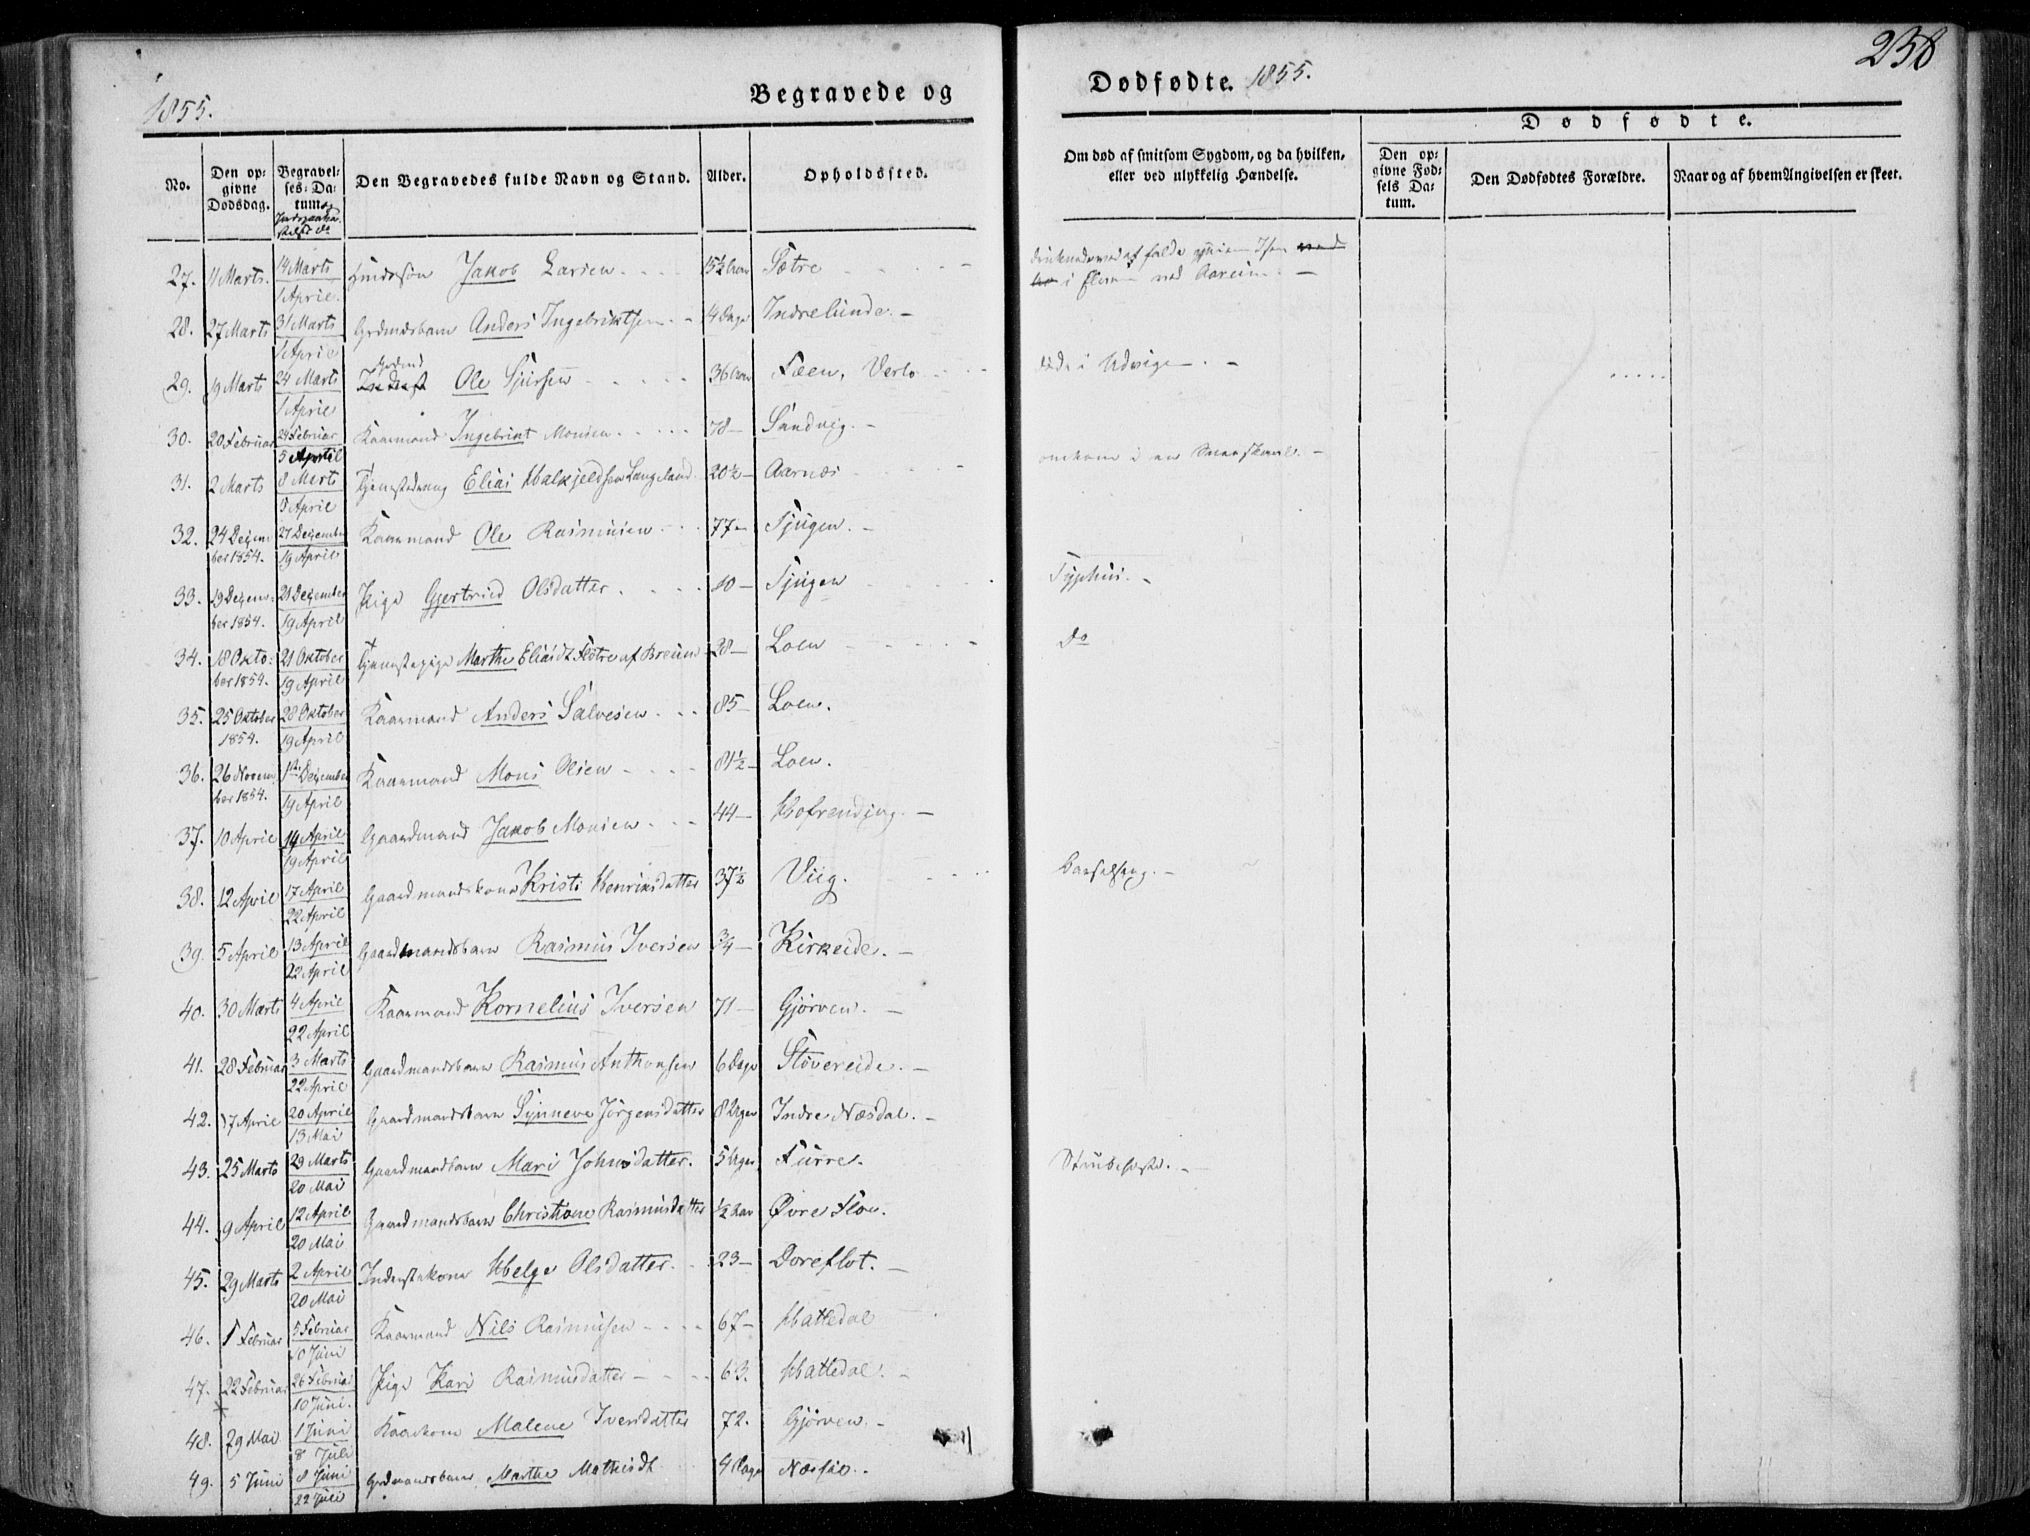 238
1855.
Begravede og
Dødfødte. 1855.
No.
Den op-
givne
Dødsdag.
Begravel-
ses-Da-
tum
Den Begravedes fulde Navn og Stand.
Alder.
Opholdssted.
Om død af smitsom Sygdom, og da hvilken,
eller ved ulykkelig Hændelse.
Dødfødte.
Den op-
givne Fød-
sels Da-
tum.
Den Dødfødtes Forældre.
Naar og af hvem Angivelsen er skeet.
27. 11 Marts. 14 Marts Jakob Larsen 15½ Sætre
1 April. i ved Aareim
28. 27 Marts 31 Marts Grdmdsbarn Anders Ingebriktsen 4 Dage Indrelunde.
1 April
29. 19 Marts 24 Marts Ole Sjursen 36 Aar Faen, Verlo døde i Udvige
1 April
30. 20 Februar 24 Februar Kaarmand Ingebrikt Monsen 78 Sandvig.
5 April
31. 2 Marts 8 Marts Tjenestedreng Elias Halkjeldsen Langeland 20½ Aarnæs omkom i en Sneeskavl.
9 April
32. 24 Dezem 27 Dezember Kaarmand Ole Rasmusen 77 Tjugen.
ber 1854. 19 April
33. 19 Dezem- 21 Dezember Pige Gjertrud Olsdatter 10 Tjugen Typhus.
ber 1854. 19 April
34. 18 Okto- 21 Oktober Tjenestepige Marthe Eliasdt. Flotre af Breum 28 Loen Do
ber 1854. 19 April
35. 25 Oktober 28 Oktober Kaarmand Anders Salvesen 85 Loen.
1854. 19 April
36. 26 Novem 1ste Dezember Kaarmand Mons Olsen 81½ Loen.
ber 1854. 19 April
37. 10 April 14 April Gaardmand Jakob Monsen 44 Hofrending.
19 April
38. 12 April 17 April Gaardmandskone Kristi Henriksdatter 37½ Viig. Barselseng.
22 April
39. 5 April 13 April Gaardmandsbarn Rasmus Iversen ¾ Kirkeide.
22 April
40. 30 Marts 4 April Kaarmand Kornelius Iversen 71 Gjørven.
22 April
41. 28 Februar 3 Marts Gaardmandsbarn Rasmus Anthonsen 6 Dage Støvereide.
22 April
42. 17 April 20 April Gaardmandsbarn Synneve Jørgensdatter 8 Uger Indre Næsdal.
13 Mai
43. 25 Marts 29 Marts Gaardmandsbarn Mari Johnsdatter. 5 Uger Furre. Strubehoste.
20 Mai
44. 9 April 12 April Gaardmandsbarn Christiane Rasmusdatter ½ Aar Øvre Floe.
20 Mai
45. 29 Marts 2 April Inderstekone Helge Olsdatter. 23 Doreflot.
20 Mai
46. 1 Februar 5 Februar Kaarmand Nils Rasmusen 67 Hattedal
10 Juni
47. 22 Februar 26 Februar Pige Kari Rasmusdatter 63. Hattedal.
10 Juni.
48. 29 Mai 1 Juni Kaarkone Malene Iversdatter 72. Gjørven.
8 Juli
49. 5 Juni 8 Juni Grdmandsbarn Marthe Mathisdt. 4 Dage
22 Juli